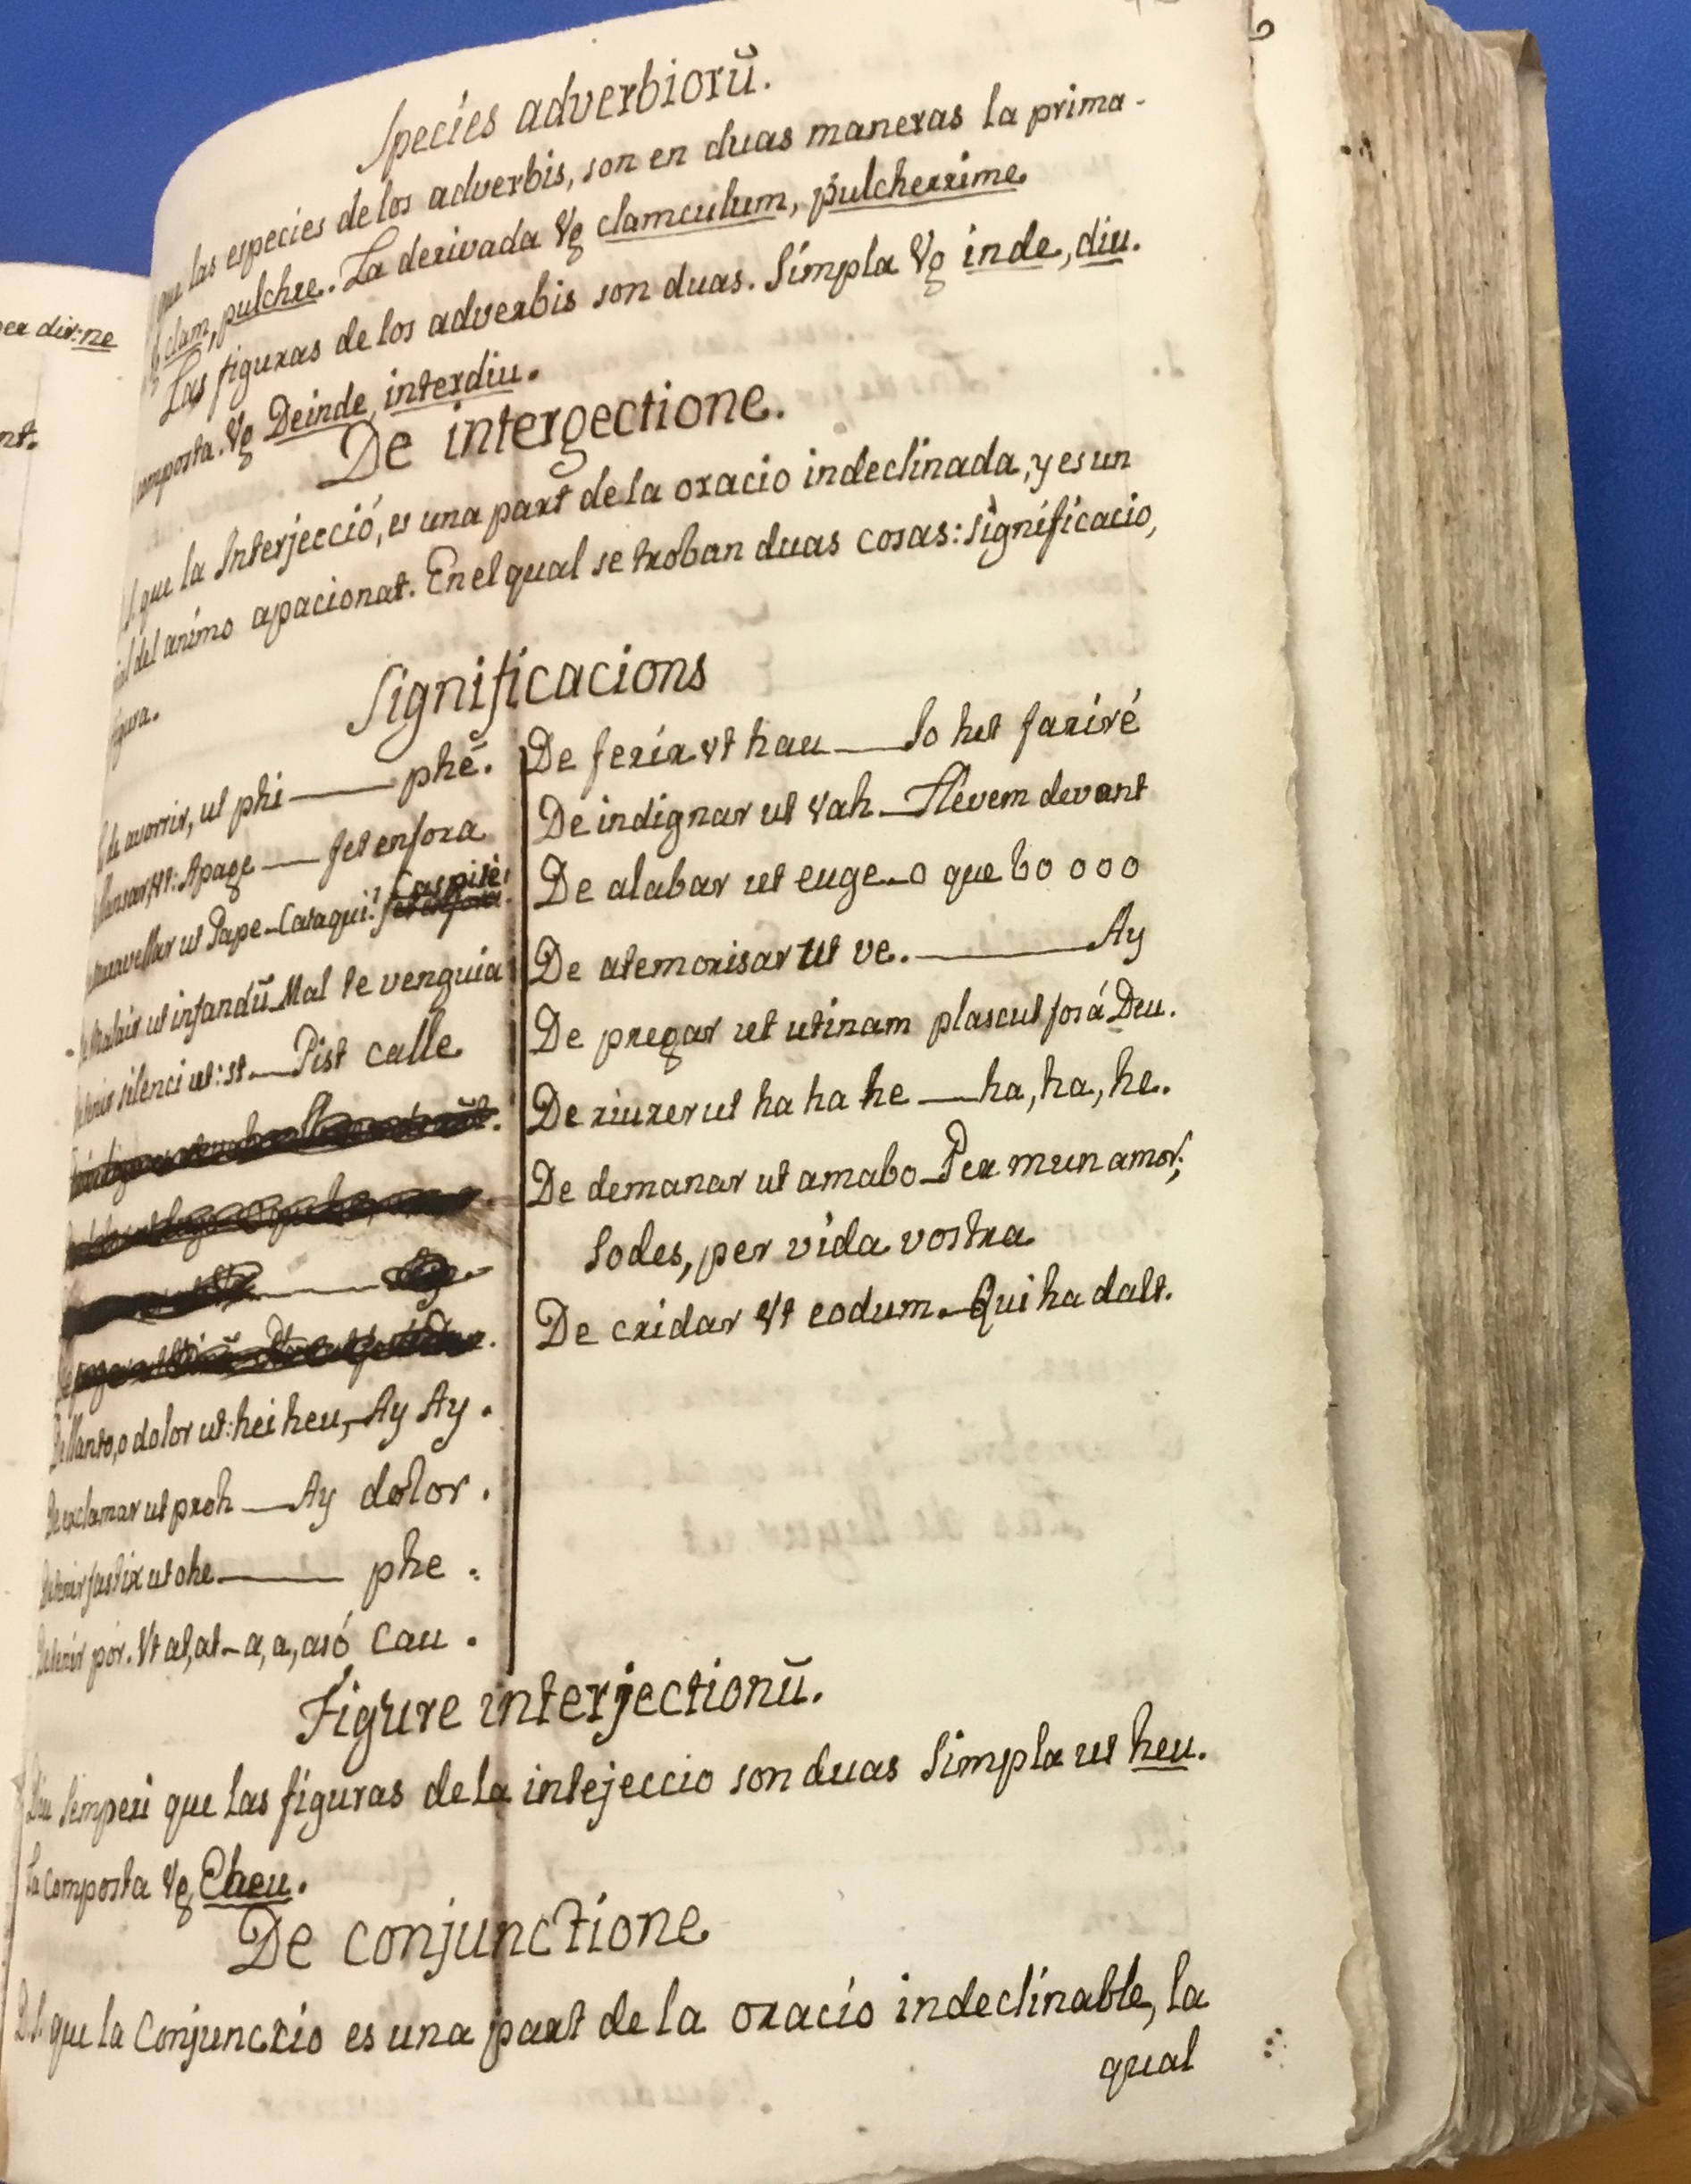 Species adverbiorū.
que las especies de los adverbis, son en duas maneras la prima-
clam, pulchre. La derivada Vg clamculum, pulcherrime.
Las figuras de los adverbis son duas. Simpla Vg inde, diu.
composta. Vg Deinde, interdiu.
De intergectione.
que la Interjecció, es una part de la oracio indeclinada, y es un
del animo apacionat. En el qual se troban duas cosas: significacio,
figura.
Significacions
de avorrir, ut phi — phē.
Apage — fet enfora
ut Pape - Caraqui! Caspite!
ut infandū Mal te venguia
silenci ut: st. — Pist calle
De llanto, o dolor ut: hei heu, - Ay Ay.
De exclamar ut proh — Ay dolor.
fastix ut ohe — phe.
por. Vt at, at - a, a, asó cau.
De ferir Vt hau — So het fariré
De indignar ut vah — Llevem devant
De alabar ut euge - o que bo o o o
De atemorisar ut ve. — Ay
De pregar ut utinam plascut fos á Deu.
De riurer ut ha ha he — ha, ha, he.
De demanar ut amabo - Per mun amor;
Sodes, per vida vostra
De cridar Vt eodum. - Qui ha dalt.
Figure interjectionū.
Semperi que las figuras de la intejeccio son duas Simpla ut heu.
La composta Vg Eheu.
De conjunctione
que la Conjunccio es una part de la oracio indeclinable, la
qual
per dir: ne
nt.